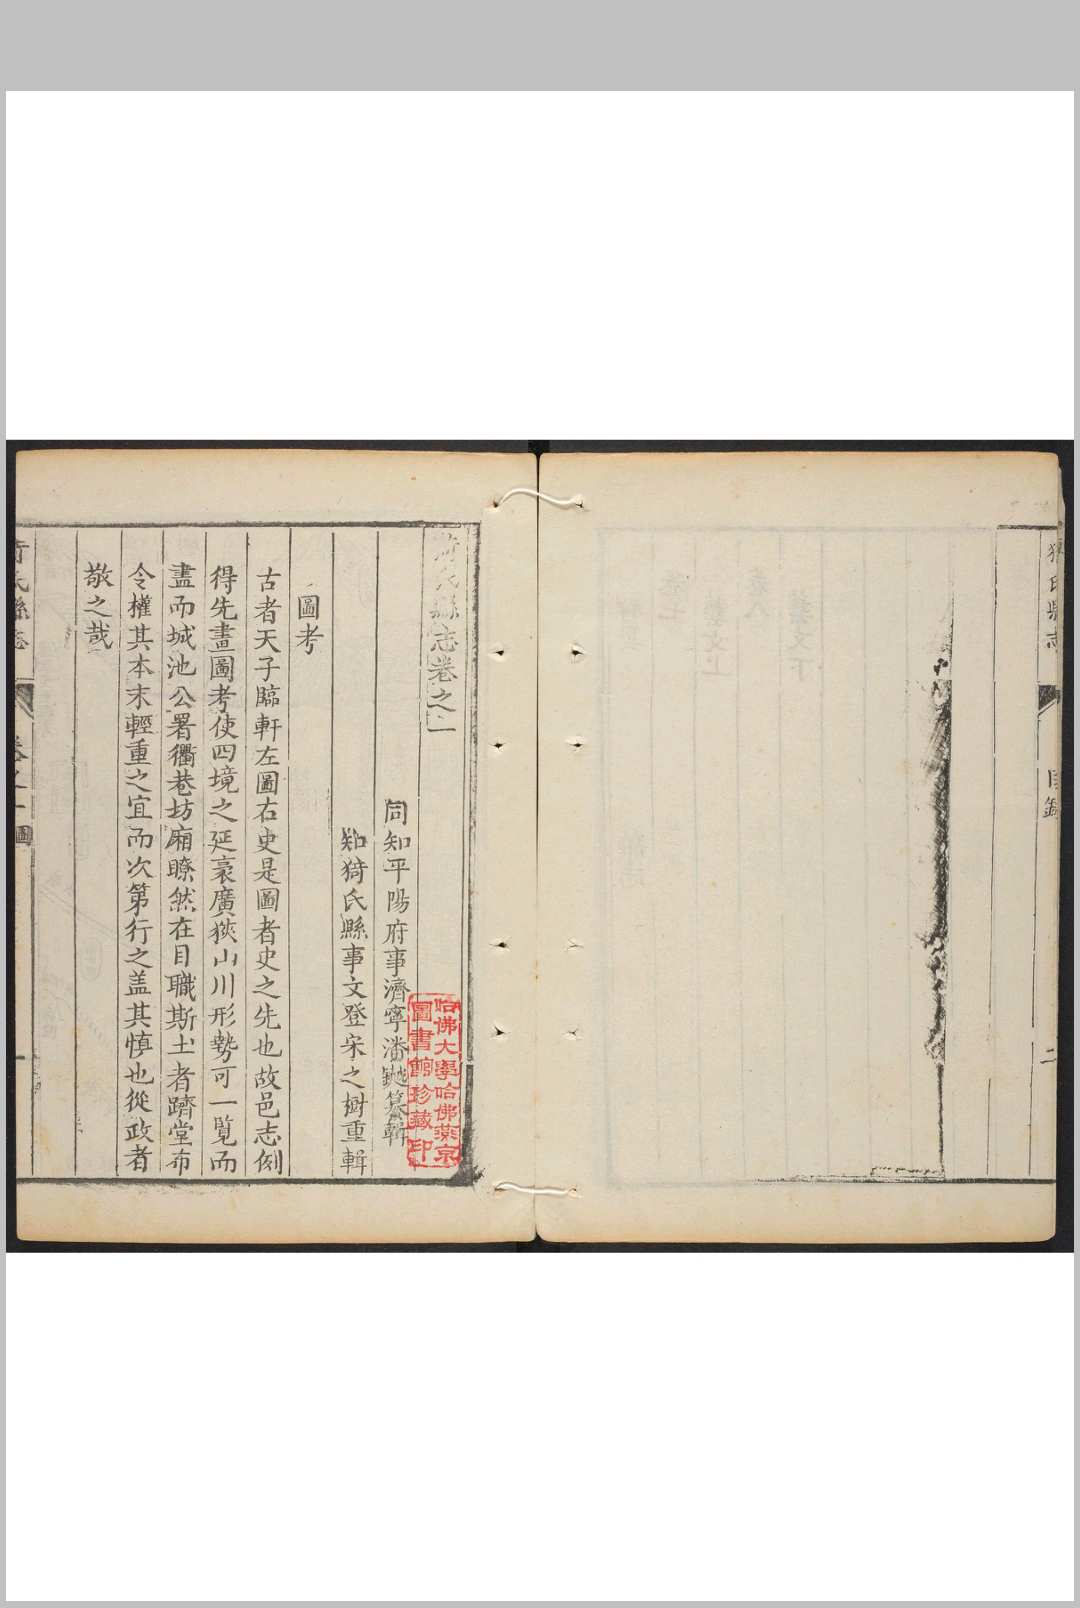 猗氏縣志
目錄
二
猗氏縣志卷之一
同知平陽府事濟寧潘鉞纂輯
知猗氏縣事文登宋之樹重輯
圖考
古者天子臨軒左圖右史是圖者史之先也故邑志例
得先畫圖考使四境之延袤廣狹山川形勢可一覧而
盡而城池公署衢巷坊廂瞭然在目職斯土者躋堂布
令權其本末輕重之宜而次第行之盖其慎也從政者
敬之哉
猗氏縣志
卷之一
圖
一
哈佛大學哈佛燕京
圖書館珍藏印